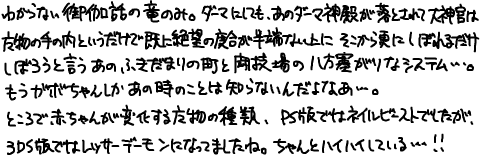 わからない御伽話の竜のみ。ダーマにしても、あのダーマ神殿が落とされて大神官は
魔物の手の内というだけで既に絶望の度合が半端ない上に そこから更に しぼれるだけ
しぼろうと言う あの ふきだまりの町と闘技場の八方塞がりなシステム…。
もうガボちゃんしか あの時のことは知らないんだよなあ…。
ところで赤ちゃんが変化する魔物の種類、PS版ではネイルビーストでしたが、
3DS版ではレッサーデーモンになってましたね。ちゃんとハイハイしている…!!